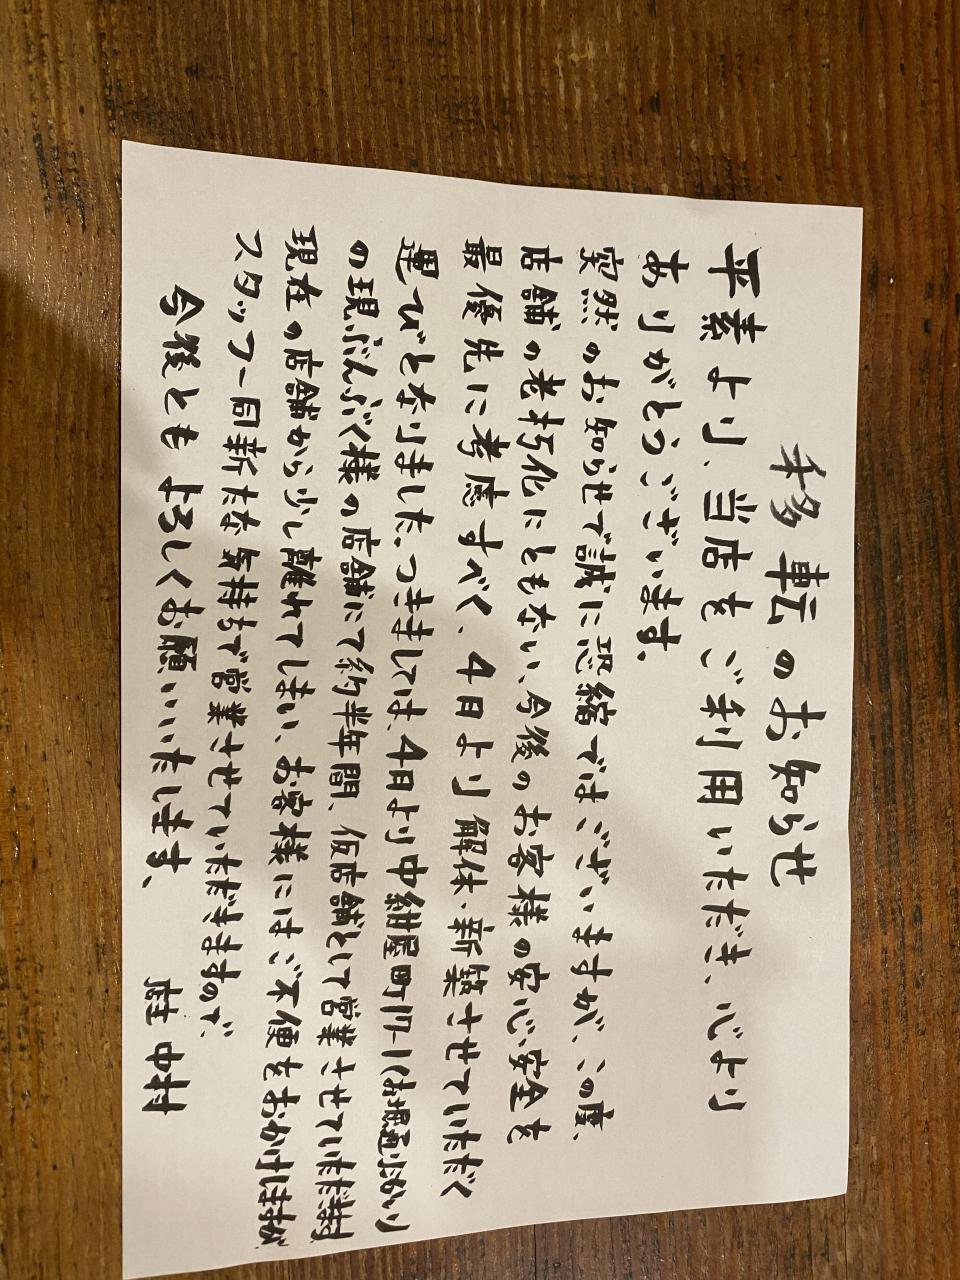 移転のお知らせ
平素より、当店をご利用いただき、心より
ありがとうございます。
突然のお知らせで誠に恐縮ではございますが、この度、
店舗の老朽化にともない、今後のお客様の安心安全を
最優先に考慮すべく、4日より解体・新築させていただく
運びとなりました。つきましては、4日より中紺屋町17-1(お堀通りぶかり
の現ぶんぶく様の店舗にて約半年間、仮店舗として営業させていただきます
現在の店舗から少し離れてしまい、お客様にはご不便をおかけしますが
スタッフ一同新たな気持ちで営業させていただきますので、
今後ともよろしくお願いいたします。
中村